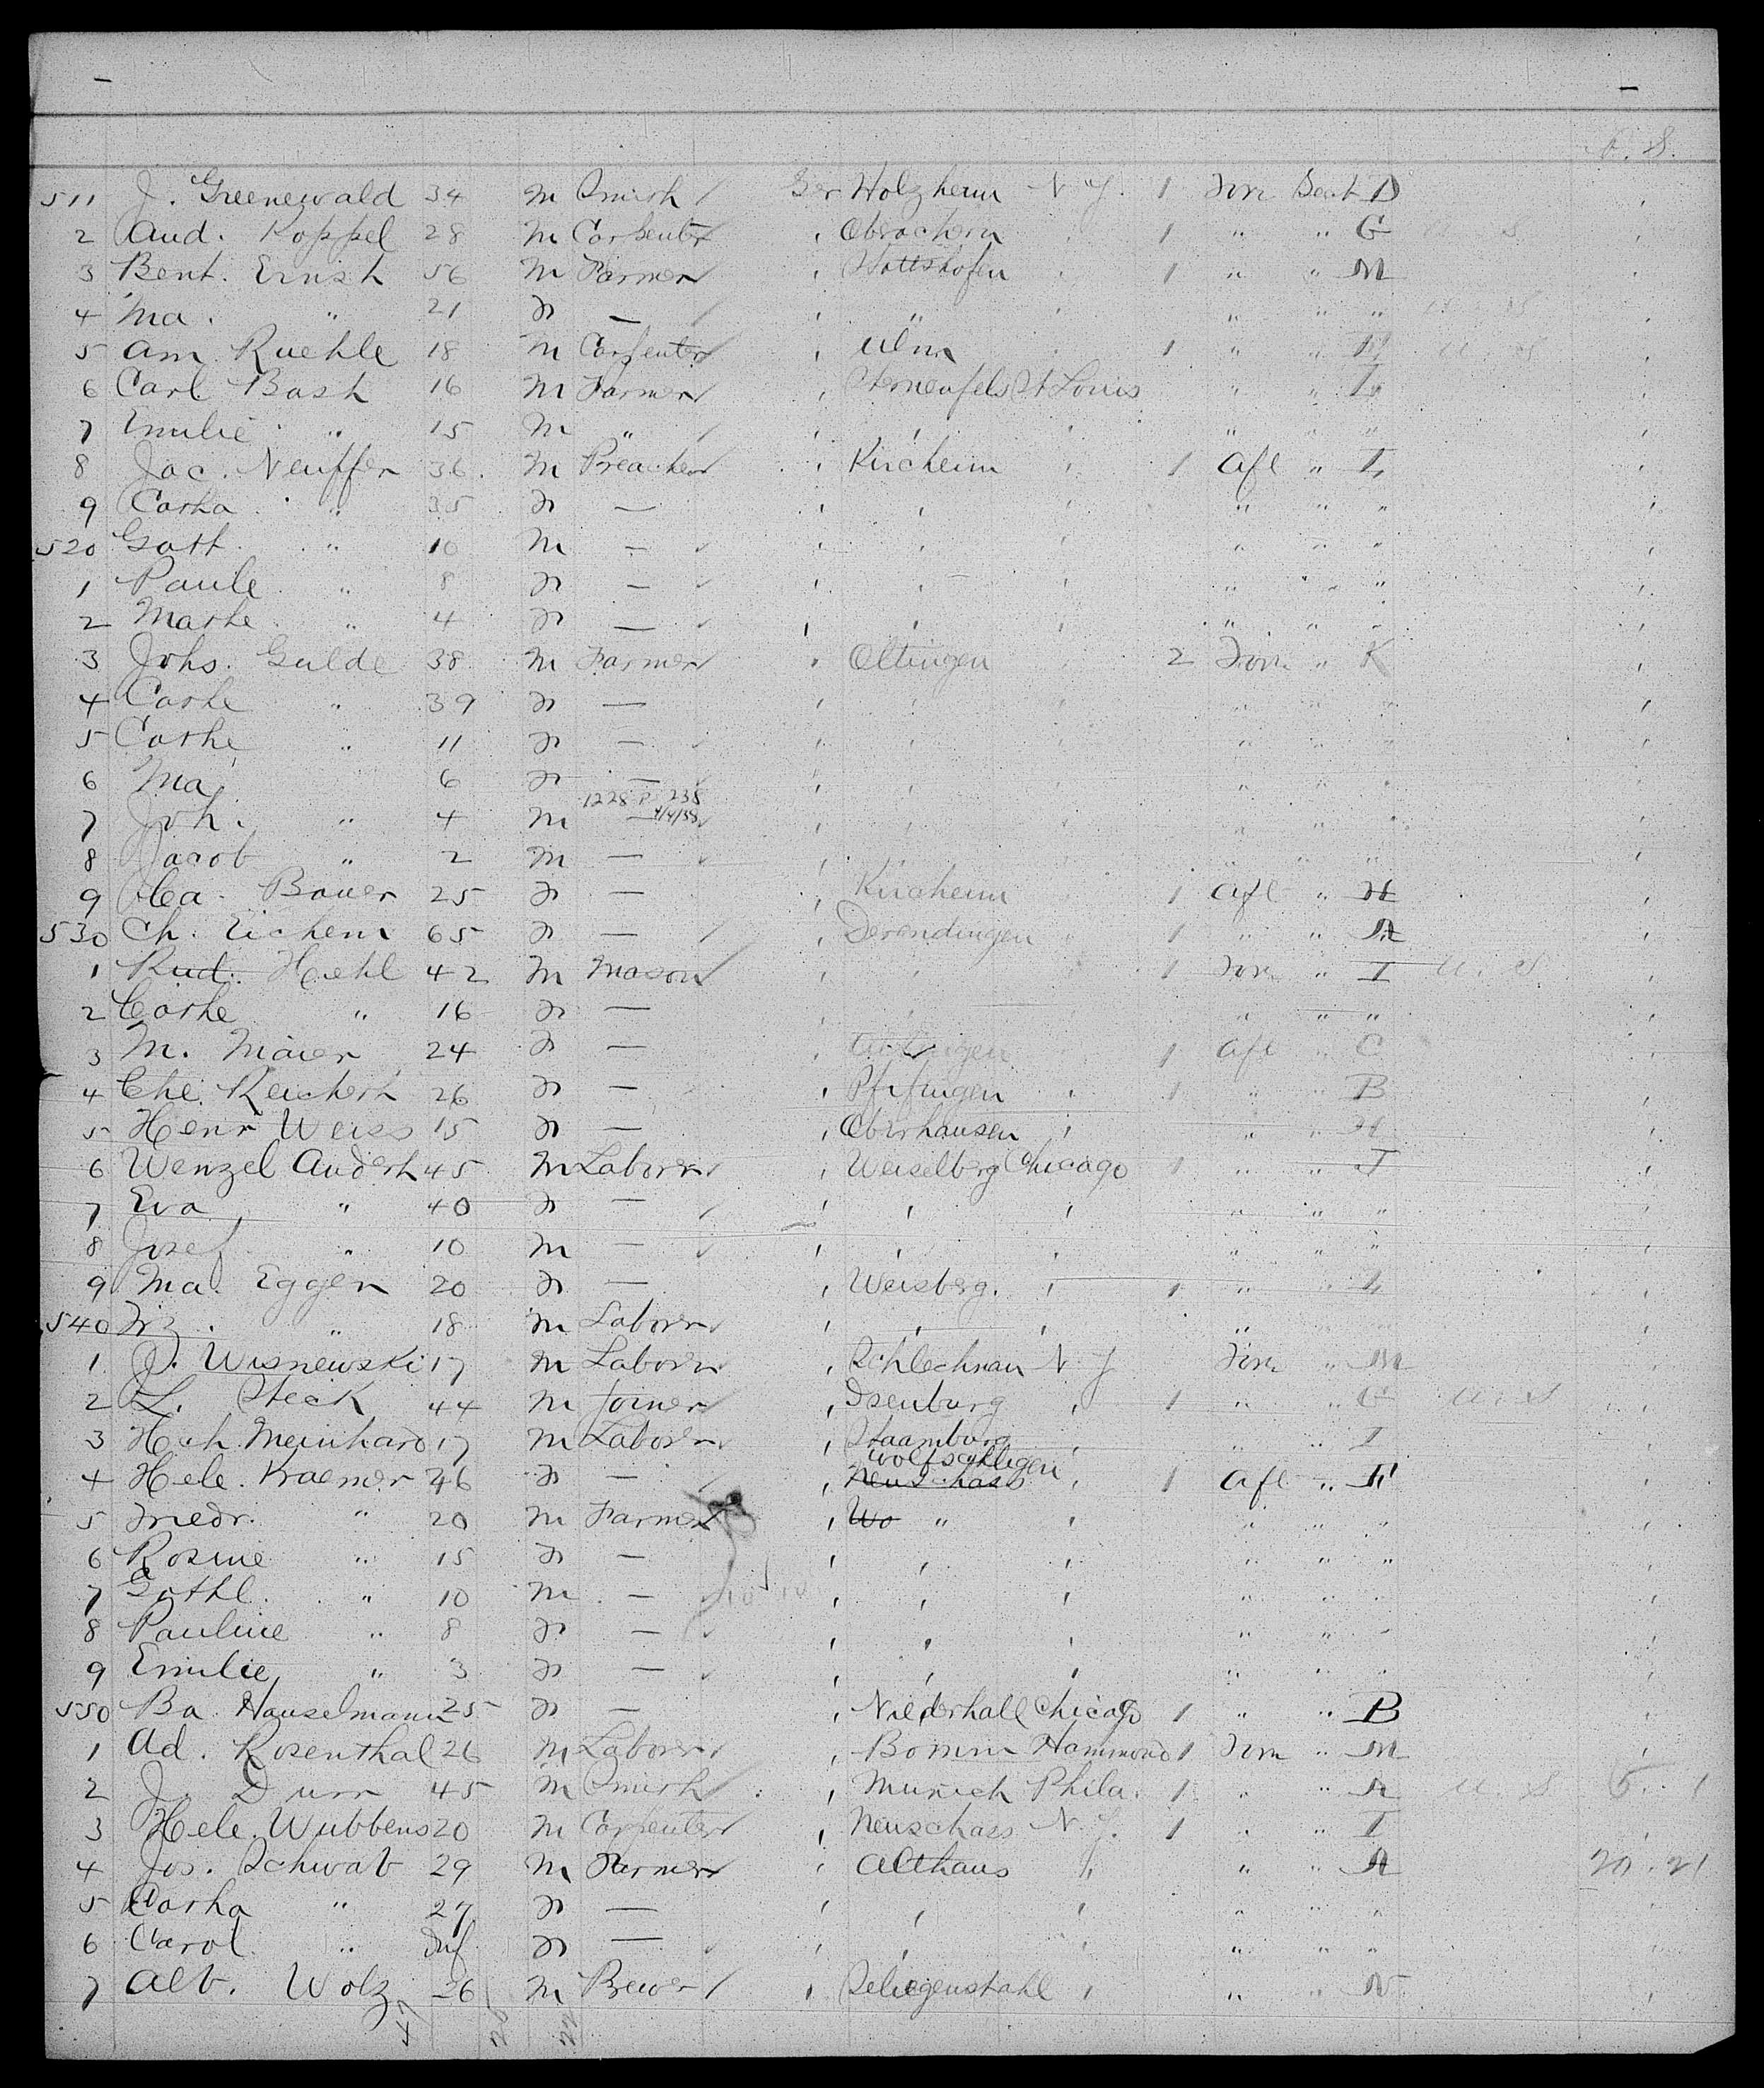 511 J. Greenewald 34 m Smith Ger Holzheim N.Y. 1 Forw Sect D
2 And. Koppel 28 m Carpenter " 1 " " G U. S
3 Bent. Ernst 56 m Farmer " 1 " " M
4 Ma. " 21 f — " " " " " U. S
5 Am Ruehle 18 m Carpenter " Ulm 1 " " U. S
6 Carl Bash 16 m Farmer " Sternenfels St Louis " " L
7 Emilie " 15 m " " " " " " "
8 Jac. Neuffer 36 m Preacher " Kircheim " 1 Aft " L
9 Catha " 35 f — " " " " " "
520 Gott. " 10 m — " " " " " "
1 Paule " 8 f — " " " " " "
2 Marthe " 4 f — " " " " " "
3 Johs. Gulde 38 m Farmer " Oltingen 2 Forw " K
4 Cathe " 39 f — " " " " " "
5 Cathe " 11 f — " " " " " "
6 Ma 6 f — " " " " " "
1228 P 238
7 Joh. " 4 m — 4/4/38 " " " " " "
8 Jacob " 2 m — " " " " " "
9 Bauer 25 f — " Kircheim 1 Aft " H
530 Ch. Eichem 65 f — " Derendingen 1 " " A
1 Rud. Hehl 42 m Mason " " 1 Forw " I U. S
2 Cathe " 16 f — " " " " "
3 M. Maier 24 f — " 1 Aft " C
4 Che. Reichert 26 f — " Pfrfingen " 1 " " B
5 Henr Weiss 15 f — " Oberhausen " " " H
6 Wenzel Anderh 45 m Laborer " Weiselberg Chicago 1 " " I
7 Eva " 40 f — " " " " " "
8 Josef " 10 m — " " " " " "
9 Ma. Egger 20 f — " Weisberg. " 1 " " L
540 Frz. " 18 m Laborer " " " "
1 J. Wisnewski 17 m Laborer " Schlechnau N.Y Forw " M
2 L. Steck 44 m Joiner " Isenburg " 1 " " G U. S
3 Hch. Meinhard 17 m Laborer " Staamburg " " " I
Wolfschlugen
4 Hele. Kraemer 46 f — " Neuschass " 1 Aft " F
5 Friedr. " 20 m Farmer " Wo " " " " "
6 Rosine " 15 f — " " " " " "
7 Gottl. " 10 m — " " " " " "
8 Pauline " 8 f — " " " " "
9 Emilie " 3 f — " " " " " "
550 Ba. Hauselmann 25 f — " Niederhall Chicago 1 " " B
1 Ad. Rosenthal 26 m Laborer " Bomm Hammond 1 Forw " M
2 J. Durr 45 m Smith " Munich Phila. 1 " " A U. S 5. 1
3 Hele. Wubbens 20 m Carpenter " Neuschass N.Y. 1 " " I
4 Jos. Schwab 29 m Farmer " Althaus " " " A 20. 21
5 Catha " 27 f — " " " " " "
6 Carol " Inf f — " " " " "
7 Alb. Wolz 26 m Brewer " Seliegenstahl " " " N